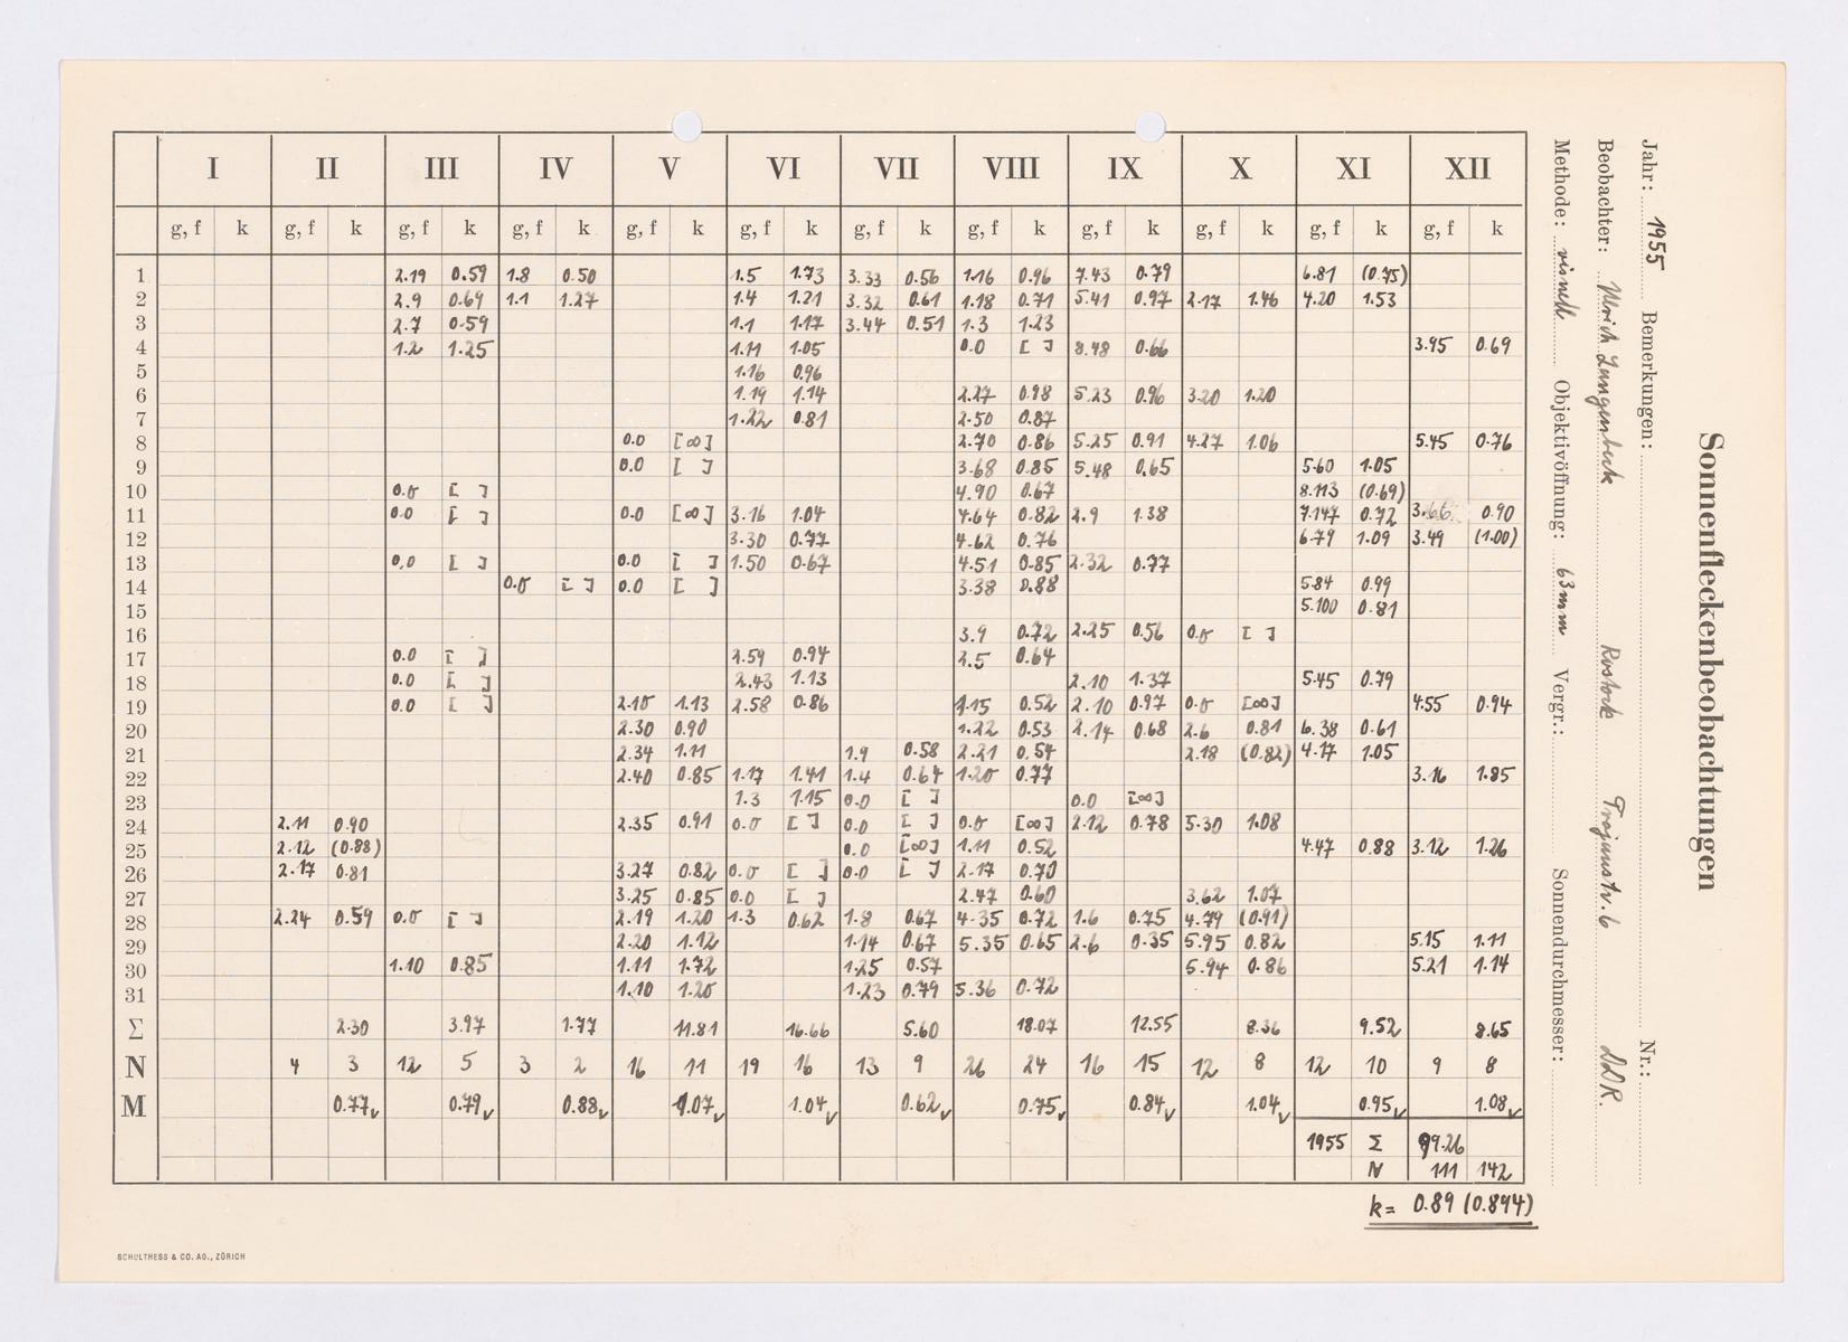 Sonnenfleckenbeobachtungen
Jahr: 1955 Bemerkungen: Nr.:
Beobachter: Ulrich Langenbeck Rostock Trojanstr. 6 DDR.
Methode: visuell Objektivöffnung: 63mm Vergr.: Sonnendurchmesser:
I II III IV V VI VII VIII IX X XI XII
g, f k g, f k g, f k g, f k g, f k g, f k g, f k g, f k g, f k g, f k g, f k g, f k
1 2.19 0.59 1.8 0.50 1.5 1.73 3.33 0.56 1.16 0.96 7.43 0.79 6.81 (0.75)
2 2.9 0.69 1.1 1.27 1.4 1.21 3.32 0.61 1.18 0.71 5.41 0.97 2.17 1.46 4.20 1.53
3 2.7 0.59 1.1 1.17 3.44 0.51 1.3 1.23
4 1.2 1.25 1.11 1.05 0.0 [ ] 8.48 0.66 3.95 0.69
5 1.16 0.96
6 1.19 1.14 2.27 0.98 5.23 0.96 3.20 1.20
7 1.22 0.81 2.50 0.87
8 0.0 [∞] 2.70 0.86 5.25 0.91 4.27 1.06 5.45 0.76
9 0.0 [ ] 3.68 0.85 5.48 0.65 5.60 1.05
10 0.0 [ ] 4.90 0.67 8.113 (0.69)
11 0.0 [ ] 0.0 [∞] 3.16 1.04 4.64 0.82 2.9 1.38 7.147 0.72 3.66 0.90
12 3.30 0.77 4.62 0.76 6.79 1.09 3.49 (1.00)
13 0.0 [ ] 0.0 [ ] 1.50 0.67 4.51 0.85 2.32 0.77
14 0.0 [ ] 0.0 [ ] 3.38 0.88 5.84 0.99
15 5.100 0.81
16 3.9 0.72 2.25 0.56 0.0 [ ]
17 0.0 [ ] 2.59 0.94 2.5 0.64
18 0.0 [ ] 2.43 1.13 2.10 1.37 5.45 0.79
19 0.0 [ ] 2.10 1.13 2.58 0.86 1.15 0.52 2.10 0.97 0.0 [∞] 4.55 0.94
20 2.30 0.90 1.22 0.53 2.14 0.68 2.6 0.81 6.38 0.61
21 2.34 1.11 1.9 0.58 2.21 0.54 2.18 (0.82) 4.17 1.05
22 2.40 0.85 1.17 1.41 1.4 0.64 1.20 0.77 3.16 1.85
23 1.3 1.15 0.0 [ ] 0.0 [∞]
24 2.11 0.90 2.35 0.91 0.0 [ ] 0.0 [ ] 0.0 [∞] 2.12 0.78 5.30 1.08
25 2.12 (0.88) 0.0 [∞] 1.11 0.52 4.47 0.88 3.12 1.26
26 2.17 0.81 3.27 0.82 0.0 [ ] 0.0 [ ] 2.17 0.70
27 3.25 0.85 0.0 [ ] 2.47 0.60 3.62 1.07
28 2.24 0.59 0.0 [ ] 2.19 1.20 1.3 0.62 1.8 0.67 4.35 0.72 1.6 0.75 4.79 (0.91)
29 2.20 1.12 1.14 0.67 5.35 0.65 2.6 0.35 5.95 0.82 5.15 1.11
30 1.10 0.85 1.11 1.72 1.25 0.57 5.94 0.86 5.21 1.14
31 1.10 1.20 1.23 0.79 5.36 0.72
Σ 2.30 3.97 1.77 11.81 16.66 5.60 18.07 12.55 8.36 9.52 8.65
N 4 3 12 5 3 2 16 11 19 16 13 9 26 24 16 15 12 8 12 10 9 8
M 0.77✓ 0.79✓ 0.88✓ 1.07✓ 1.04✓ 0.62✓ 0.75✓ 0.84✓ 1.04✓ 0.95✓ 1.08✓
1955 Σ 99.26
N 111 142
k= 0.89 (0.894)
SCHULTHESS & CO. AG., ZÜRICH